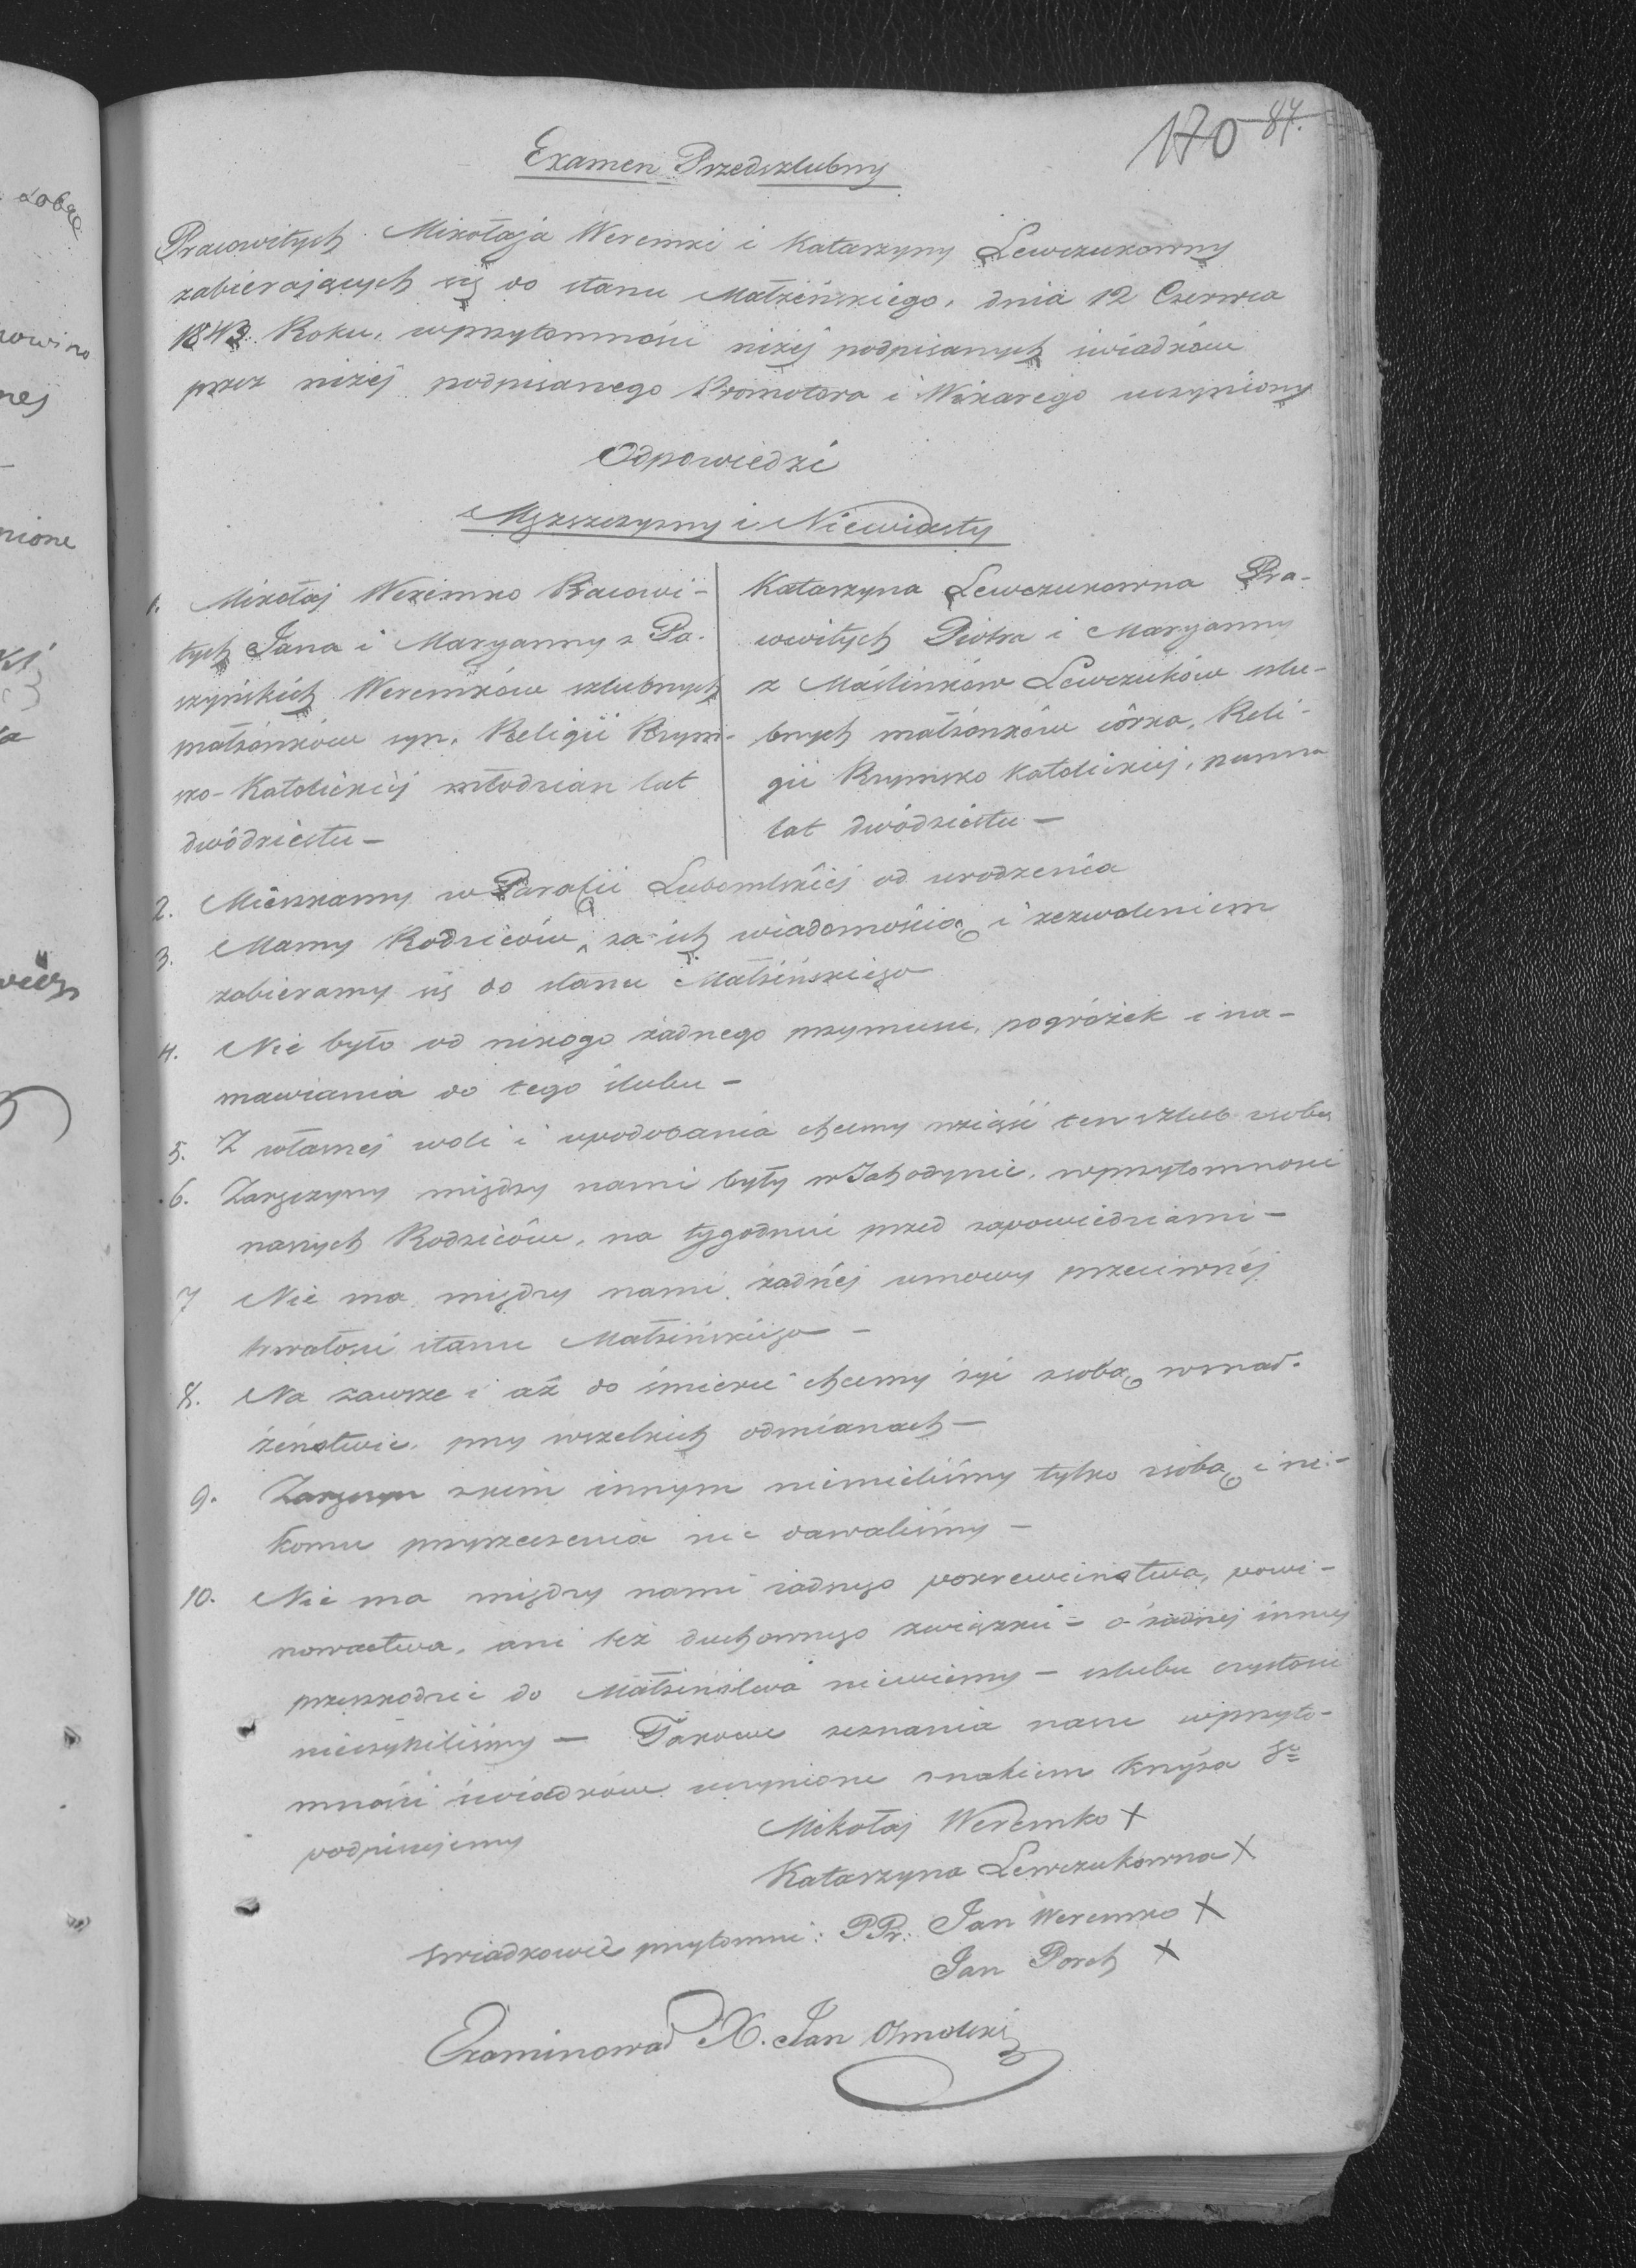 170 84.
Examen Przedszlubny
Pracowitych Mikołaja Weremki i Katarzyny Lewczukowny
zabierających się do stanu Małżeńskiego, dnia 12 Czerwca
1843 Roku, wprzytomności niżej podpisanych świadków
przez niżej podpisanego Promotora i Wikarego uczyniony
Odpowiedzi
Mężczyzny i Niewiasty
1. Mikołaj Weremko Pracowi-
tych Jana i Maryanny z Pa-
szyńskich Weremków szlubnych
małżonków syn, Religii Rzym-
sko-Katolickiéj młodzian lat
dwódziestu —
Katarzyna Lewczukowna Pra-
cowitych Piotra i Maryanny
z Maślinków Lewczuków szlu-
bnych małżonków córka, Reli-
gii Rzymsko Katolickiej, panna
lat dwódziestu —
2. Mieszkamy w Parafii Lubomlskiéj od urodzenia
3. Mamy Rodziców, za ich wiadomością i zezwoleniem
zabieramy się do stanu Małżeńskiego
4. Nie było od nikogo żadnego przymusu, pogróżek i na-
mawiania do tego ślubu —
5. Z własnej woli i upodobania chcemy wziąść ten szlub zsobą
6. Zaręczyny między nami były w Jahodynie, wprzytomności
naszych Rodziców, na tygodniu przed zapowiedziami —
7 Nie ma między nami żadnéj umowy przeciwnéj
trwałości stanu Małżeńskiego —
8. Na zawsze i aż do śmierci chcemy żyć zsobą wmał-
żeństwie, przy wszelkich odmianach —
9. Zaręczyn zkim innym niemieliśmy tylko zsobą i ni-
komu przyrzeczenia nie dawaliśmy —
10. Nie ma między nami żadnego pokrewieństwa, powi-
nowactwa, ani też duchownego związku — o żadnej innej
przeszkodzie do Małżeństwa niewiemy — szlubu czystości
nieczyniliśmy — Takowe zeznania nasze wprzyto-
mności świadków uczynione znakiem Krzyża Sgo
podpisujemy
Mikołaj Weremko X
Katarzyna Lewczukowna X
Swiadkowie przytomni: PPr: Jan Weremko X
Jan Porch X
Examinował X. Jan Osmolski